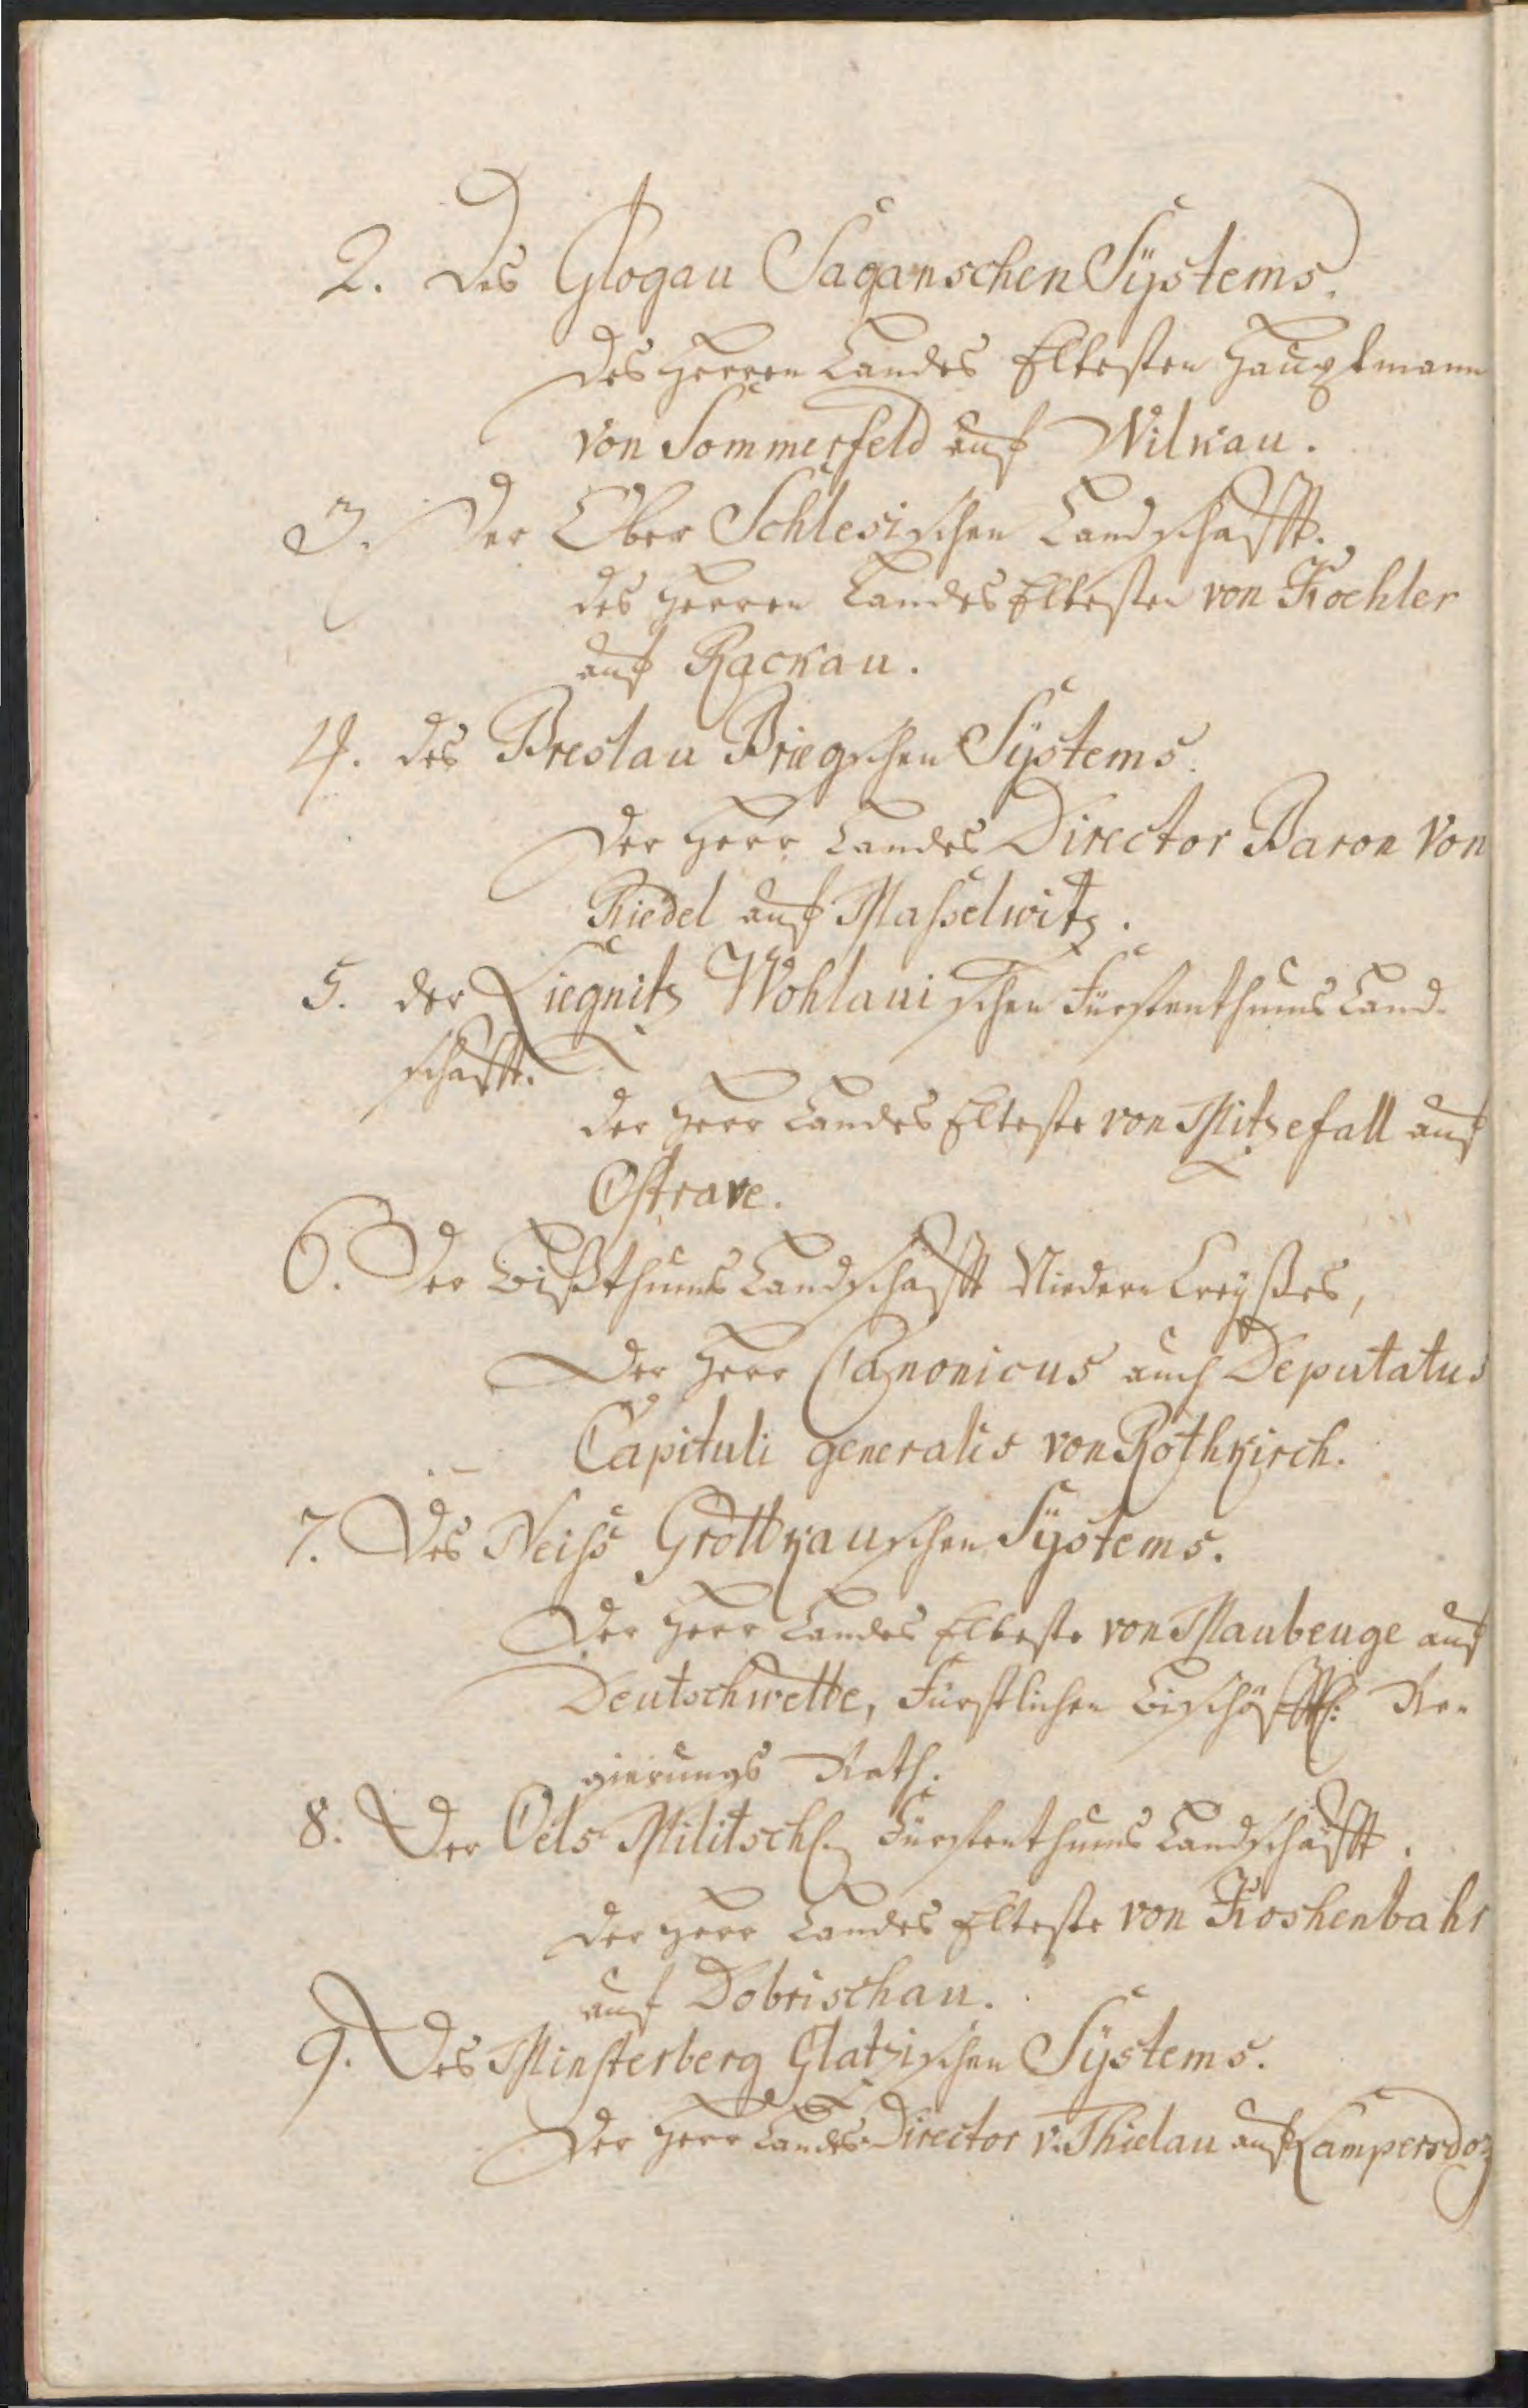 2. des Glogau Saganschen Systems.
des Herren Landes Eltesten Hauptmann
von Sommerfeld auf Wilkau.
3. der Ober Schlesischen Landschafft.
des Herren Landes Eltesten von Koehler
auf Rackau.
4. des Breslau Briegschen Systems.
der Herr Landes Director Baron von
Riedel auf Masselwitz.
5. der Liegnitz Wohlauischen Fürstenthums Land-
schafft.
der Herr Landes Elteste von Mitzefall auf
Ostrave.
6. Der Bißthums Landschafft Niedern Creyßes,
der Herr Canonicus auch Deputatus
Capituli generalis von Rothkirch.
7. Des Neiss Grottkauschen Systems.
Der Herr Landes Elteste von Maubeuge auf
Deutschwette, Fürstlichen Bischöffl: Re-
gierungs Rath.
8. Der Oels Militsch. Fürstenthums Landschafft.
der Herr Landes Elteste von Koshenbahr
auf Dobrischau.
9. Des Minsterberg Glatzischen Systems.
Der Herr Landes-Director v. Thielau auf Lampersdorf